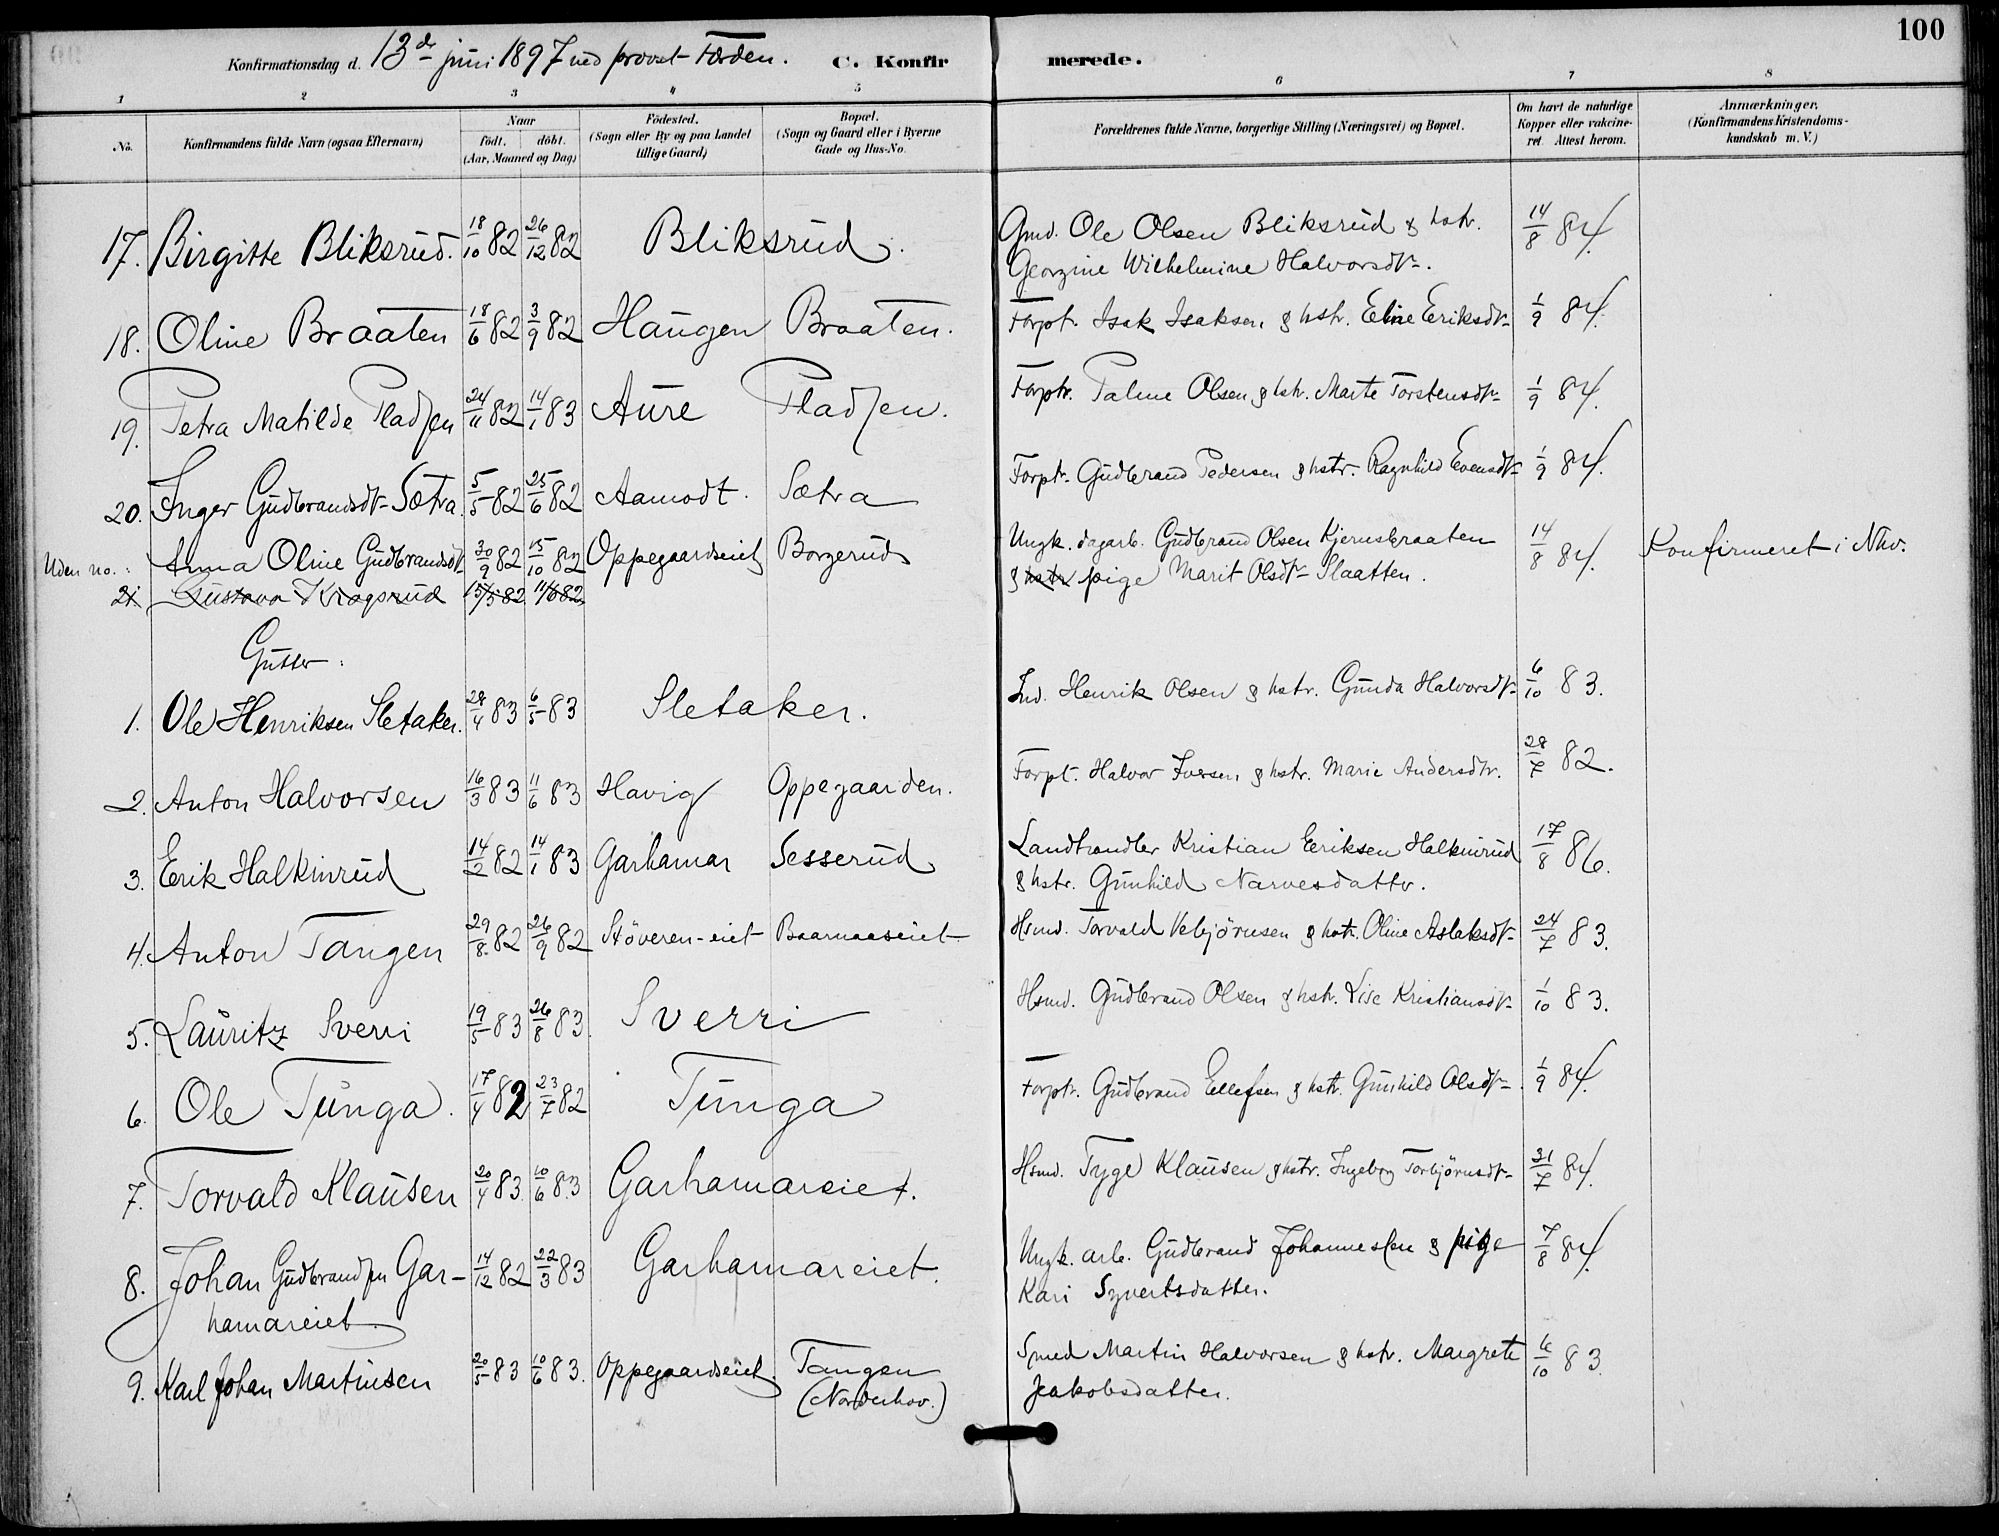 100
Konfirmationsdag d. 13de juni 1897 ved provst Förden. C. Konfirmerede.
1 2 3 4 5 6 7 8
No. Konfirmandens fulde Navn (ogsaa Efternavn) Naar födt. döbt. (Aar, Maaned og Dag) Födested. (Sogn eller By og paa Landet tillige Gaard) Bopæl. (Sogn og Gaard eller i Byerne Gade og Hus-No. Forældrenes fulde Navne, borgerlige Stilling (Næringsvei) og Bopæl. Om havt de naturlige Kopper eller vakcineret. Attest herom. Anmærkninger. (Konfirmandens Kristendomskundskab m. V.)
17. Birgitte Bliksrud. 18/10 82 26/12 82 Bliksrud. Gmd. Ole Olsen Bliksrud & hstr. 14/8 84.
Georgine Wilhelmine Halvorsdtr.
18. Oline Braaten 18/6 82 3/9 82 Haugen Braaten. Forptr. Isak Isaksen & hstr. Eline Eriksdtr 1/9 84.
19. Petra Matilde Pladsen 24/11 82 14/1 83 Aure Pladsen. Forptr. Palme Olsen & hstr. Marte Torstensdtr 1/9 84.
20. Inger Gudbrandsdtr Sætra. 5/5 82 25/6 82 Aamodt. Sætra Forptr. Gudbrand Pedersen & hstr. Ragnhild Evensdtr 1/9 84.
Uden no.: Anna Oline Gudbrandsdtr 30/9 82 15/10 82 Oppegaardseiet Borgerud Ungk. dagarb. Gudbrand Olsen Kjernsbraaten 14/8 84. Konfirmeret i Nhv.
& hstr pige Marit Olsdtr Slaatten.
21 Gustava Kragsrud 15/5 82 11/6 82
Gutter:
1. Ole Henriksen Sletaker. 28/4 83 6/5 83 Sletaker. Ind. Henrik Olsen & hstr. Gunda Halvorsdtr 6/10 83.
2. Anton Halvorsen 16/3 83 11/6 83 Havig Oppegaarden. Forpt. Halvor Iversen & hstr. Marie Andersdtr. 28/7 82.
3. Erik Halkinrud 14/2 82 14/1 83 Garhamar Sesserud Landhandler Kristian Eriksen Halkinrud 17/8 86.
& hstr. Gunhild Narvesdattr.
4. Anton Tangen 29/8 82 26/9 82 Støveren-eiet Baarnaaseiet Hsmd. Torvald Vebjörnsen & hstr. Oline Aslaksdtr 24/7 83.
5. Lauritz Sverri 19/5 83 26/8 83 Sverri Hsmd. Gudbrand Olsen & hstr. Lise Kristiansdtr 1/10 83.
6. Ole Tunga. 17/4 82 23/7 82 Tunga Forptr. Gudbrand Ellefsen & hstr. Gunhild Olsdtr 1/9 84.
7. Torvald Klausen 20/4 83. 10/6 83 Garhamareiet. Hsmd. Tyge Klausen & hstr. Ingeborg Torbjörnsdtr 31/7 84.
8. Johan Gudbrandsen Gar- 14/12 82 22/3 83 Garhamareiet. Ungk. arb. Gudbrand Johannessen & pige 7/8 84.
hamareiet. Kari Syvertsdatter.
9. Karl Johan Martinsen 20/5 83 10/6 83. Oppegaardseiet. Tangen Smed Martin Halvorsen & hstr. Margrete 6/10 83.
(Norderhov.) Jakobsdatter.